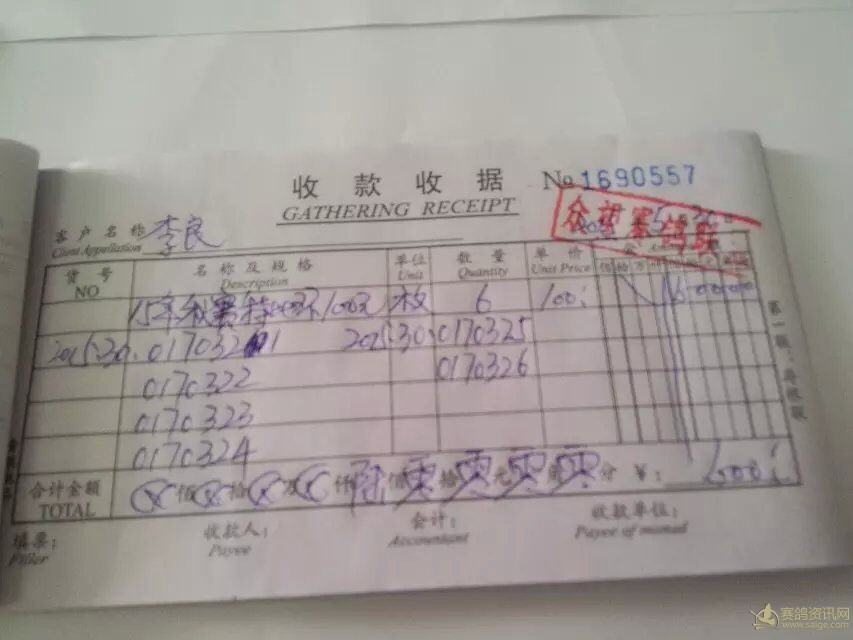 收款收据 No 1690557
GATHERING RECEIPT
众望赛鸽
客户名称 李良
Client Appellation
货号 名称及规格 单位 数量 单价
NO Description Unit Quantity Unit Price
15年秋赛特 环100元 枚 6 100 60000
2015.30.0170321 2015.30.0170325
0170322 0170326
0170323
0170324
合计金额 ⊗佰⊗拾⊗万⊗仟陆佰零拾零元零角零分 ¥: 600
TOTAL
填票: 收款人: 会计: 收款单位:
Filler Payee Accountant Payee of muinad
第一联:存根联
赛鸽资讯网
www.saige.com